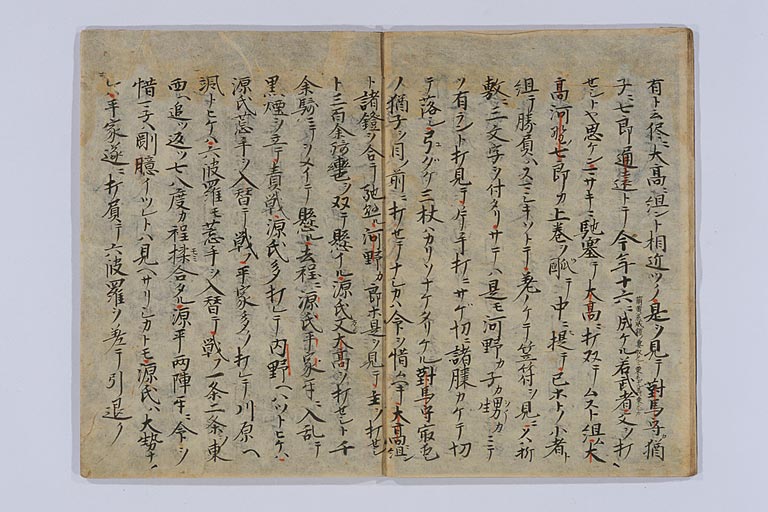 有ト云侭ニ大高ニ組ント相近ツク是ヲ見テ對馬守猶
子ニ七郎通遠トテ今年十六ニ成ケル若武者父ヲ打
セシトヤ思ケンミサキニ馳塞テ大高ニ打双テムスト組大
高河野七郎カ上巻ヲ 中ニ提テ己ホトノ小者ト
組テ勝負ハスマシキソトテ差ノケテ笠符ヲ見ニ折
敷ニ三文字ヲ付タリサテハ是モ河野カ子カ甥カニテ
ソ有ラント打見テ片手打ニサケ切ニ諸膝カケテ切
テ落シ弓タケ三杖ハカリソナケタリケル對馬守最愛
ノ猶子ヲ目ノ前ニ打セテナシカハ命ヲ惜ムヘキ大高ニ組ン
ト諸鐙ヲ合テ馳処ニ河野カ郎等是ヲ見テ主ヲ打セ
ト三百余騎轡ヲ双テ懸ル源氏又大高ヲ打セシト千
余騎ニテヲメイテ懸ル去程ニ源氏平家互ニ入乱テ
黒煙ヲ立テ責戦源氏多ク打レテ内野ヘハツトヒケハ
源氏荒手ヲ入替テ戦フ平家多ク打レテ川原ヘ
颯トヒケハ六波羅モ荒手ヲ入替テ戦フ一条二条東
西ヘ追ツ返ツ七八度カ程揉合タル源平両陣互ニ命ヲ
惜マ子ハ剛臆イツレトハ見ヘサリシカトモ源氏ハ大勢ナ
レハ平家遂ニ打負テ六波羅ヲ差テ引退ク